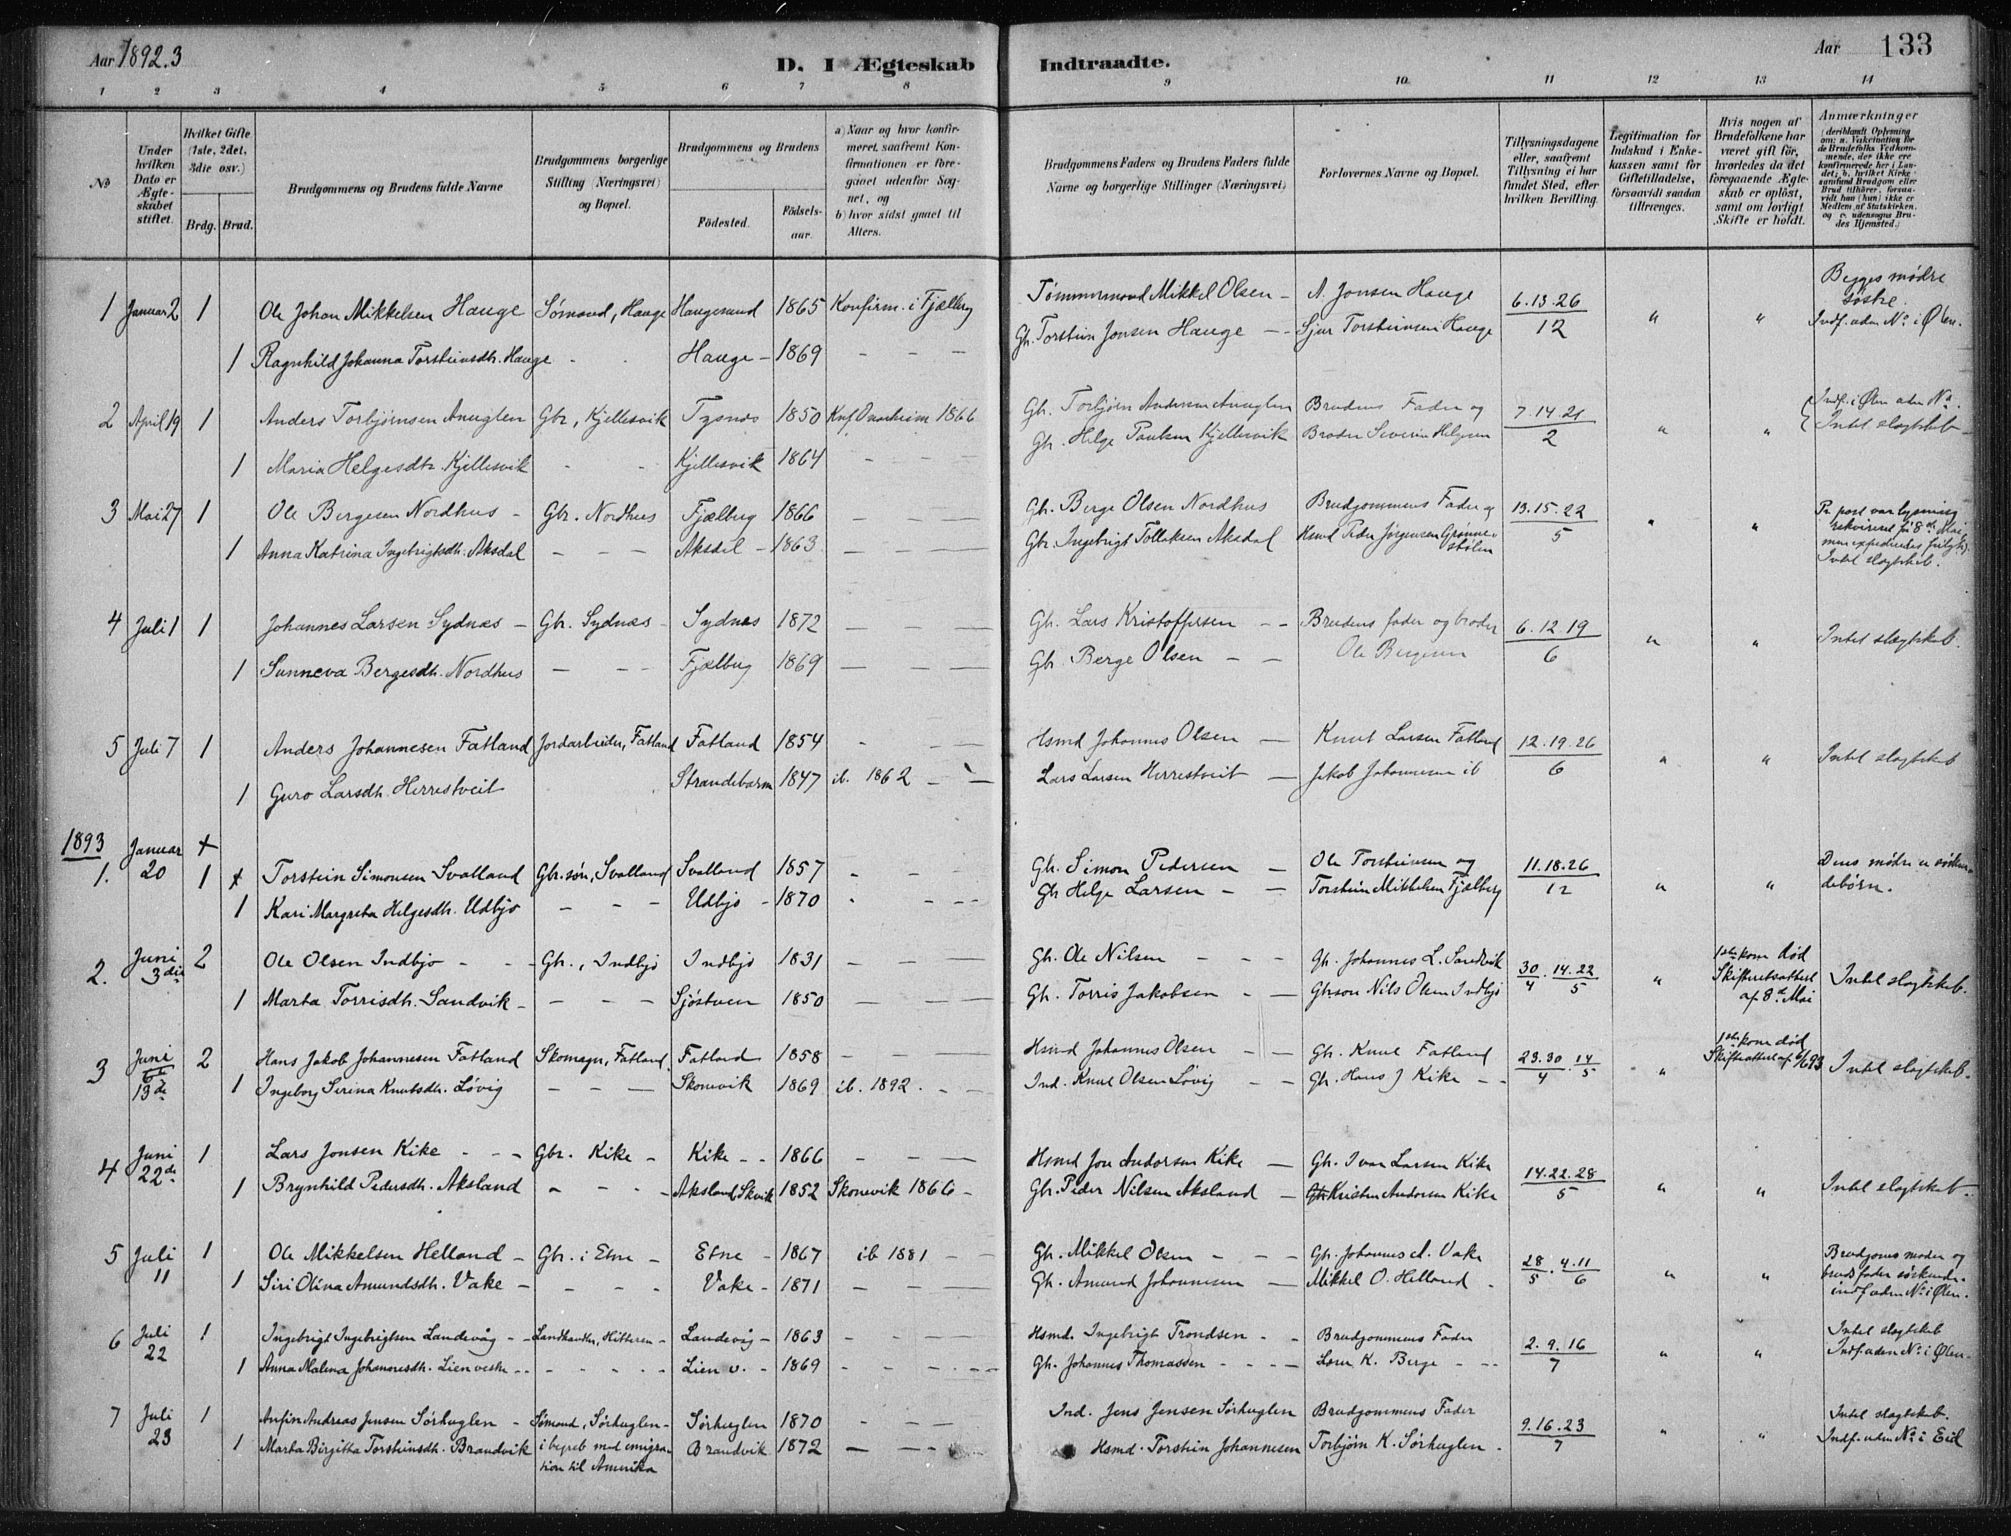 Aar 1892.3
D. I Ægteskab Indtraadte.
Aar
133
1 2 3 4 5 6 7 8 9 10 11 12 13 14
No
Under hvilken Dato er Ægteskabet stiftet.
Hvilket Gifte (1ste, 2det, 3die osv.)
Brdg. Brud.
Brudgommens og Brudens fulde Navne
Brudgommens borgerlige Stilling (Næringsvei) og Bopæl.
Brudgommens og Brudens
Fødested.
Fødselsaar.
a) Naar og hvor konfirmeret, saafremt Konfirmationen er foregaaet udenfor Sognet, og
b) hvor sidst gaaet til Alters.
Brudgommens Faders og Brudens Faders fulde Navne og borgerlige Stillinger (Næringsvei)
Forlovernes Navne og Bopæl.
Tillysningsdagene eller, saafremt Tillysning ei har fundet Sted, efter hvilken Bevilling.
Legitimation for Indskud i Enkekassen samt for Giftetilladelse, forsaavidt saadan tiltrænges.
Hvis nogen af Brudefolkene har været gift før, hvorledes da det foregaaende Ægteskab er opløst, samt om lovligt Skifte er holdt.
Anmærkninger (deriblandt Oplysning om: a. Vakcination for de Brudefolks Vedkommende, der ikke ere konfirmerede her i Landet; b. hvilket Kirkesamfund Brudgom eller Brud tilhører, forsaavidt han (hun) ikke er Medlem af Statskirken, og c. udensogns Brudes Hjemsted.)
1 Januar 2 1 Ole Johan Mikkelsen Hauge Sømand, Hauge Haugesund 1865 Konfirm. i Fjælberg Tømmermand Mikkel Olsen - A. Jonsen Hauge 6.13.26/12 " " Begges mødre søstre. Indf. uden No i Ølen.
1 Ragnhild Johanna Torsteinsdtr. Hauge - - Hauge - 1869 - - - Gb. Torstein Jonsen Hauge - - Sjur Torsteinsen Hauge
2 April 19 1 Anders Torbjørnsen Anuglen Gbr, Kjellesvik Tysnæs 1850 Knf Onarheim 1866 Gb. Torbjørn Andersen Anuglen Brudens Fader og 7.14.21/2 " " Indf. i Ølen uden No. Intet slagtskab
1 Maria Helgesdtr. Kjellesvik - - Kjellesvik 1864 - - - Gb. Helge Paulsen Kjellesvik Broder Severin Helgesen
3 Mai 27 1 Ole Bergesen Nordhus - Gbr. Nordhus Fjælberg 1866 - - - Gb. Berge Olsen Nordhus Brudgommens Fader og 13.15.22/5 " " Pr post var lysning rekvireret på 8de Mai
1 Anna Katrina Ingebrigtsdtr. Aksdal - - - Aksdal - 1863 - - - Gbr. Ingebrigt Tollaksen Aksdal Hsmd Peder Jørgensen Grønnestølen Intet slagtskab.
4 Juli 1 1 Johannes Larsen Sydnæs - Gbr. Sydnæs - Sydnæs 1872 - - - Gb. Lars Kristoffersen - - Brudens fader og broder 6.12.19/6 " " Intet slægtskab.
1 Sunneva Bergesdtr. Nordhus - - - Fjælberg 1869 - - - Gb. Berge Olsen - - Ole Bergesen
5 Juli 7 1 Anders Johannesen Fatland Jordarbeider, Fatland Fatland 1854 - - - Hsmd Johannes Olsen - Knut Larsen Fatland 12.19.26/6 " " Intet slagtskab
1 Guro Larsdtr. Herrestveit Strandebarm 1847 ib. 1862 - - Lars Larsen Herrestveit - Jakob Johannesen ib
1893
1. Januar 20 1 Torstein Simonsen Svalland Gbr.søn, Svalland Svalland 1857 - - - Gb. Simon Pedersen - Ole Torsteinsen og 11.18.26/12 " " Deres mødre er søskendebørn.
1 Kari Margreta Helgesdtr. Udbjo - - - Udbjo - 1870 - - - Gb Helge Larsen - - Torstein Mikkelsen Fjælberg
2. Juni 3die 2 Ole Olsen Indbjo - - Gb., Indbjo Indbjo 1831 - - - Gb. Ole Nilsen - - - Gb. Johannes L. Sandvik 30/4.14.22/5 " 1ste kone død Skifteretsattest af 8de Mai Intet slagtskab.
1 Marta Torrisdtr. Sandvik - - - - Sjøstveen 1850 - - - Gb. Torris Jakobsen - - Gbrsøn Nils Olsen Indbjo
3 Juni 13de 2 Hans Jakob Johannesen Fatland Skomager, Fatland Fatland 1858 - - - Hsmd Johannes Olsen - - Gb. Knut Fatland 23.30/4.14/5 " 1ste kone død Intet slagtskab.
1 Ingeborg Serina Knutsdtr. Løvig - - - Skonevik 1869 ib. 1892. - - Ind. Knut Olsen Løvig - - Gb. Hans J Kike - -
4 Juni 22de 1 Lars Jonsen Kike - - - Gbr. Kike - Kike - - 1866 - - - Hsmd Jon Andersen Kike - Gb. Ivar Larsen Kike 14.22.28/5 " " Intet slagtskab.
1 Brynhild Pedersdtr. Aksland - - - Aksland Skvik 1852 Skonevik 1866 - Gb. Peder Nilsen Aksland - Kristen Andersen Kike
5 Juli 11 1 Ole Mikkelsen Helland - Gb. i Etne - Etne - 1867 ib 1881 - - Gb. Mikkel Olsen - - - Gb. Johannes A. Vake 28/5.4.11/6 " " Brudgoms moder og bruds fader søskende. indf. uden No i Ølen.
1 Siri Olina Amundsdtr. Vake - - - - Vake - 1871 - - - Gb. Amund Johannesen - Mikkel O. Helland -
6 Juli 22 1 Ingebrigt Ingebrigtsen Landevåg - - Landhandler, Hitteren - Landevåg - 1863 - - - Hsmd. Ingebrigt Trondsen - - Brudgommens Fader 2.9.16/7 " " Intet slagtskab Indf. uden No i Ølen.
1 Anna Malena Johannesdtr. Lien vestre - - - - - - Lien v. - 1869 - - - Gb. Johannes Thomassen - - - - K. Berge - -
7 Juli 23 1 Anfin Andreas Jensen Sørhuglen - Sømand, Sørhuglen - Sørhuglen 1870 - - - Ind. Jens Jensen Sørhuglen Brudgommens Fader 9.16.23/7 " " Intet slagtskab. Indf. uden No i Eid
1 Marta Birgitha Torsteinsdtr. Brandvik i begreb med emigration til Amerika Brandvik 1872 - - - Hsmd. Torstein Johannesen Torbjørn K. Sørhuglen -